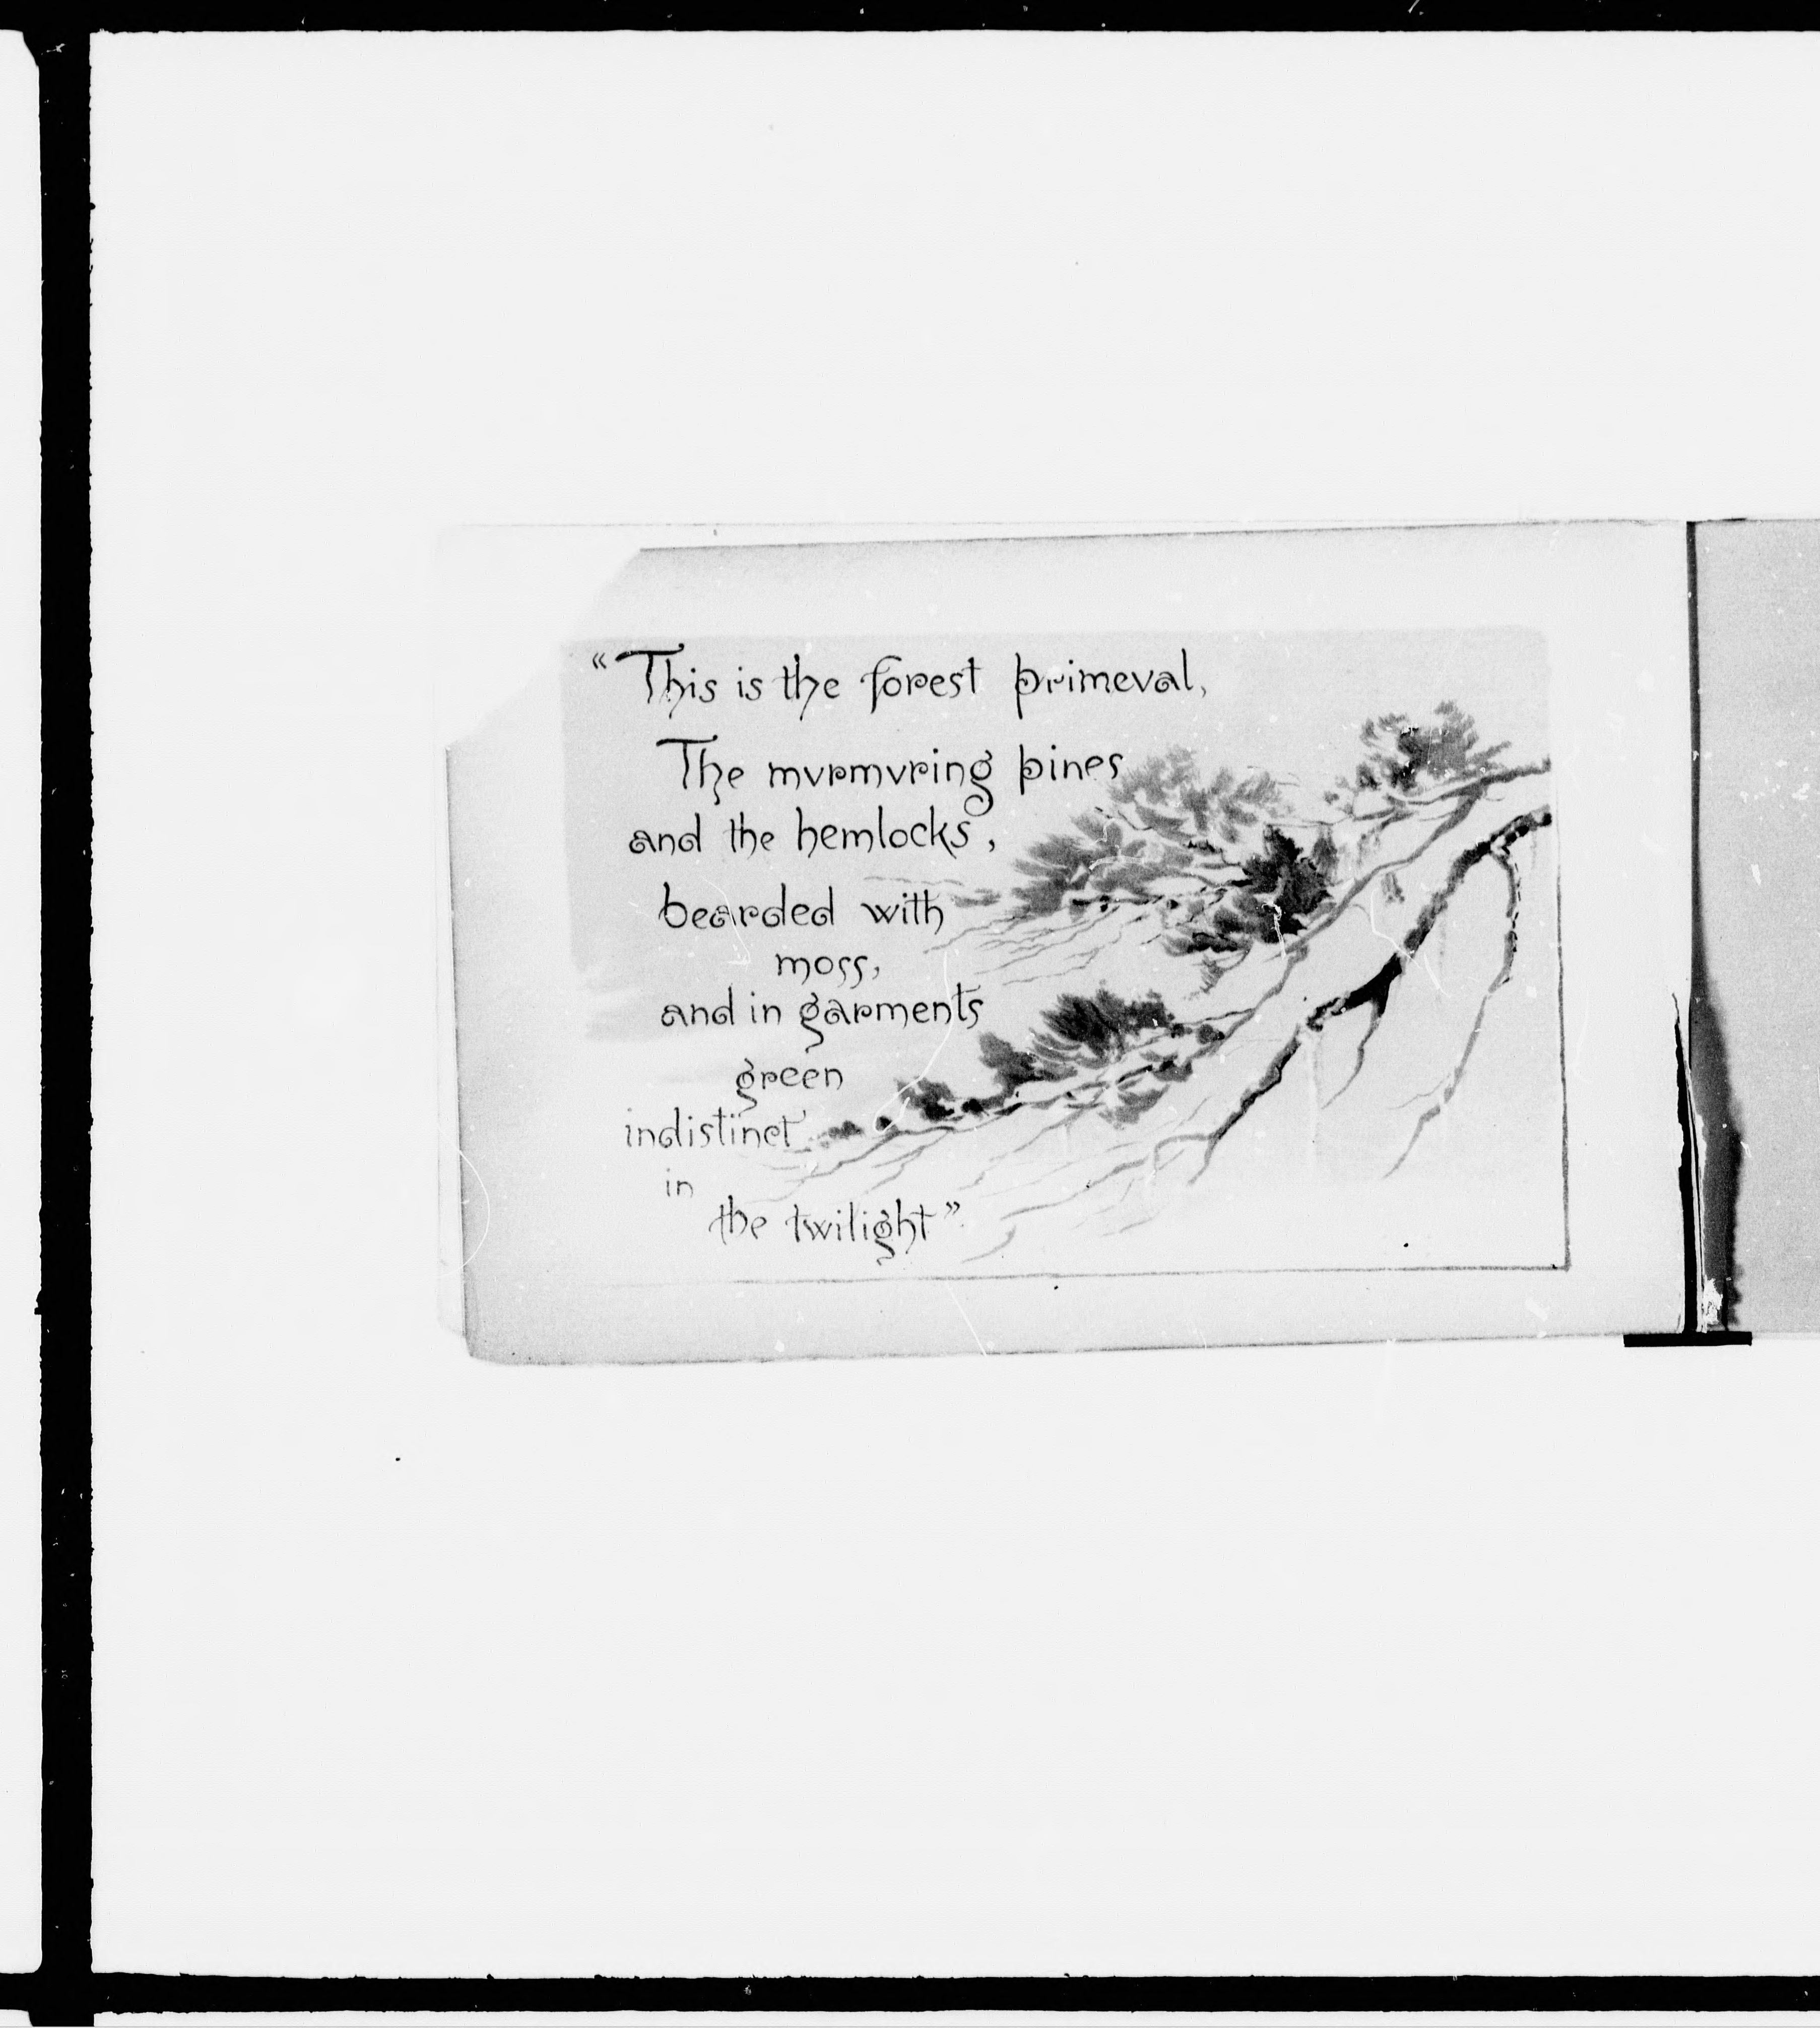 “This is the forest primeval,
The mvrmvring pines
and the hemlocks,
bearded with
moss,
and in garments
green
indistinct
in
the twilight”